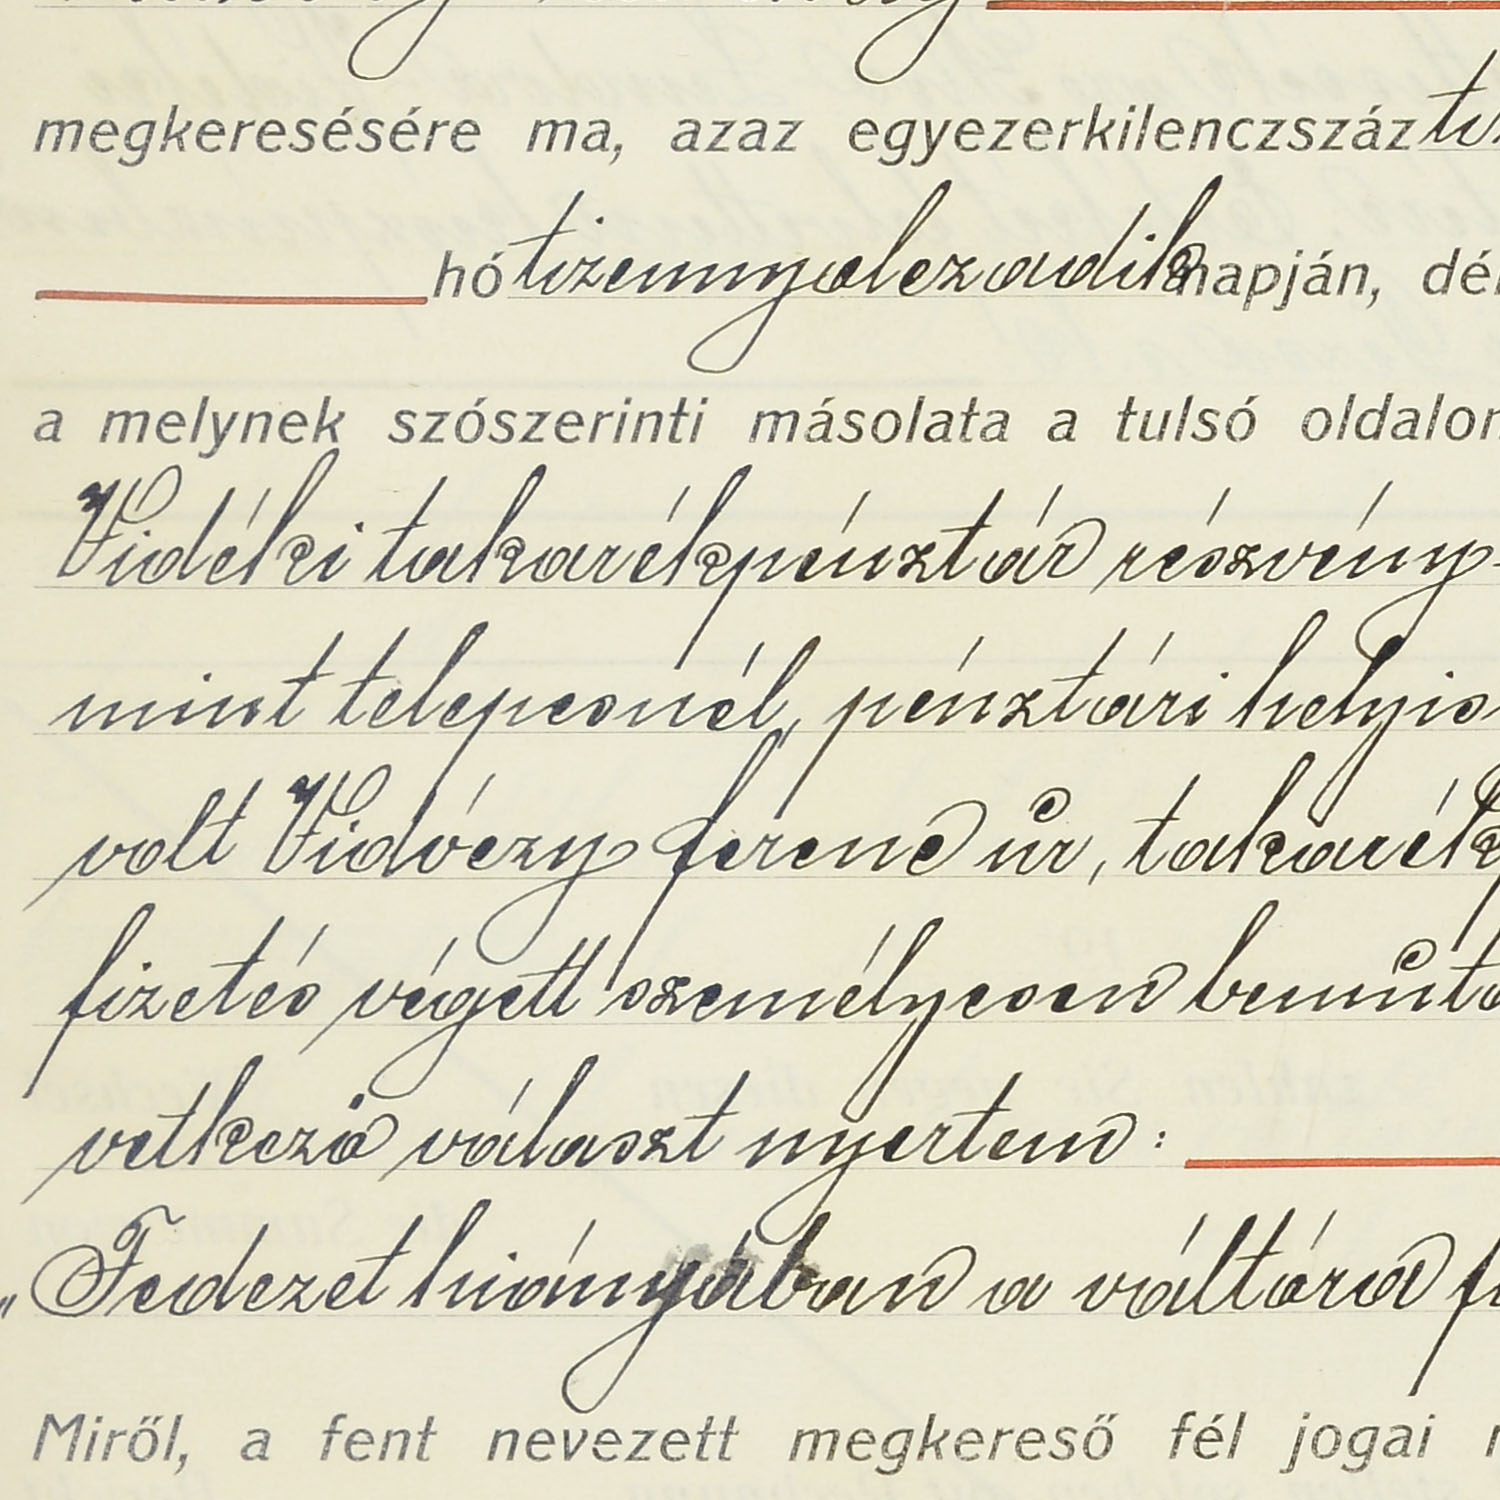 megkeresésére ma, azaz egyezerkilenczszáz
hó tizennyolczadik napján,
a melynek szószerinti másolata a tulsó oldalon
Vidéki takarékpénztár részvény-
mint telepesnél, pénztári
volt Vidóczy Ferenc úr,
fizetés végett személyesen
vetkező választ nyertem:
„Fedezet hiányában a váltóra
Miről, a fent nevezett megkereső fél jogai